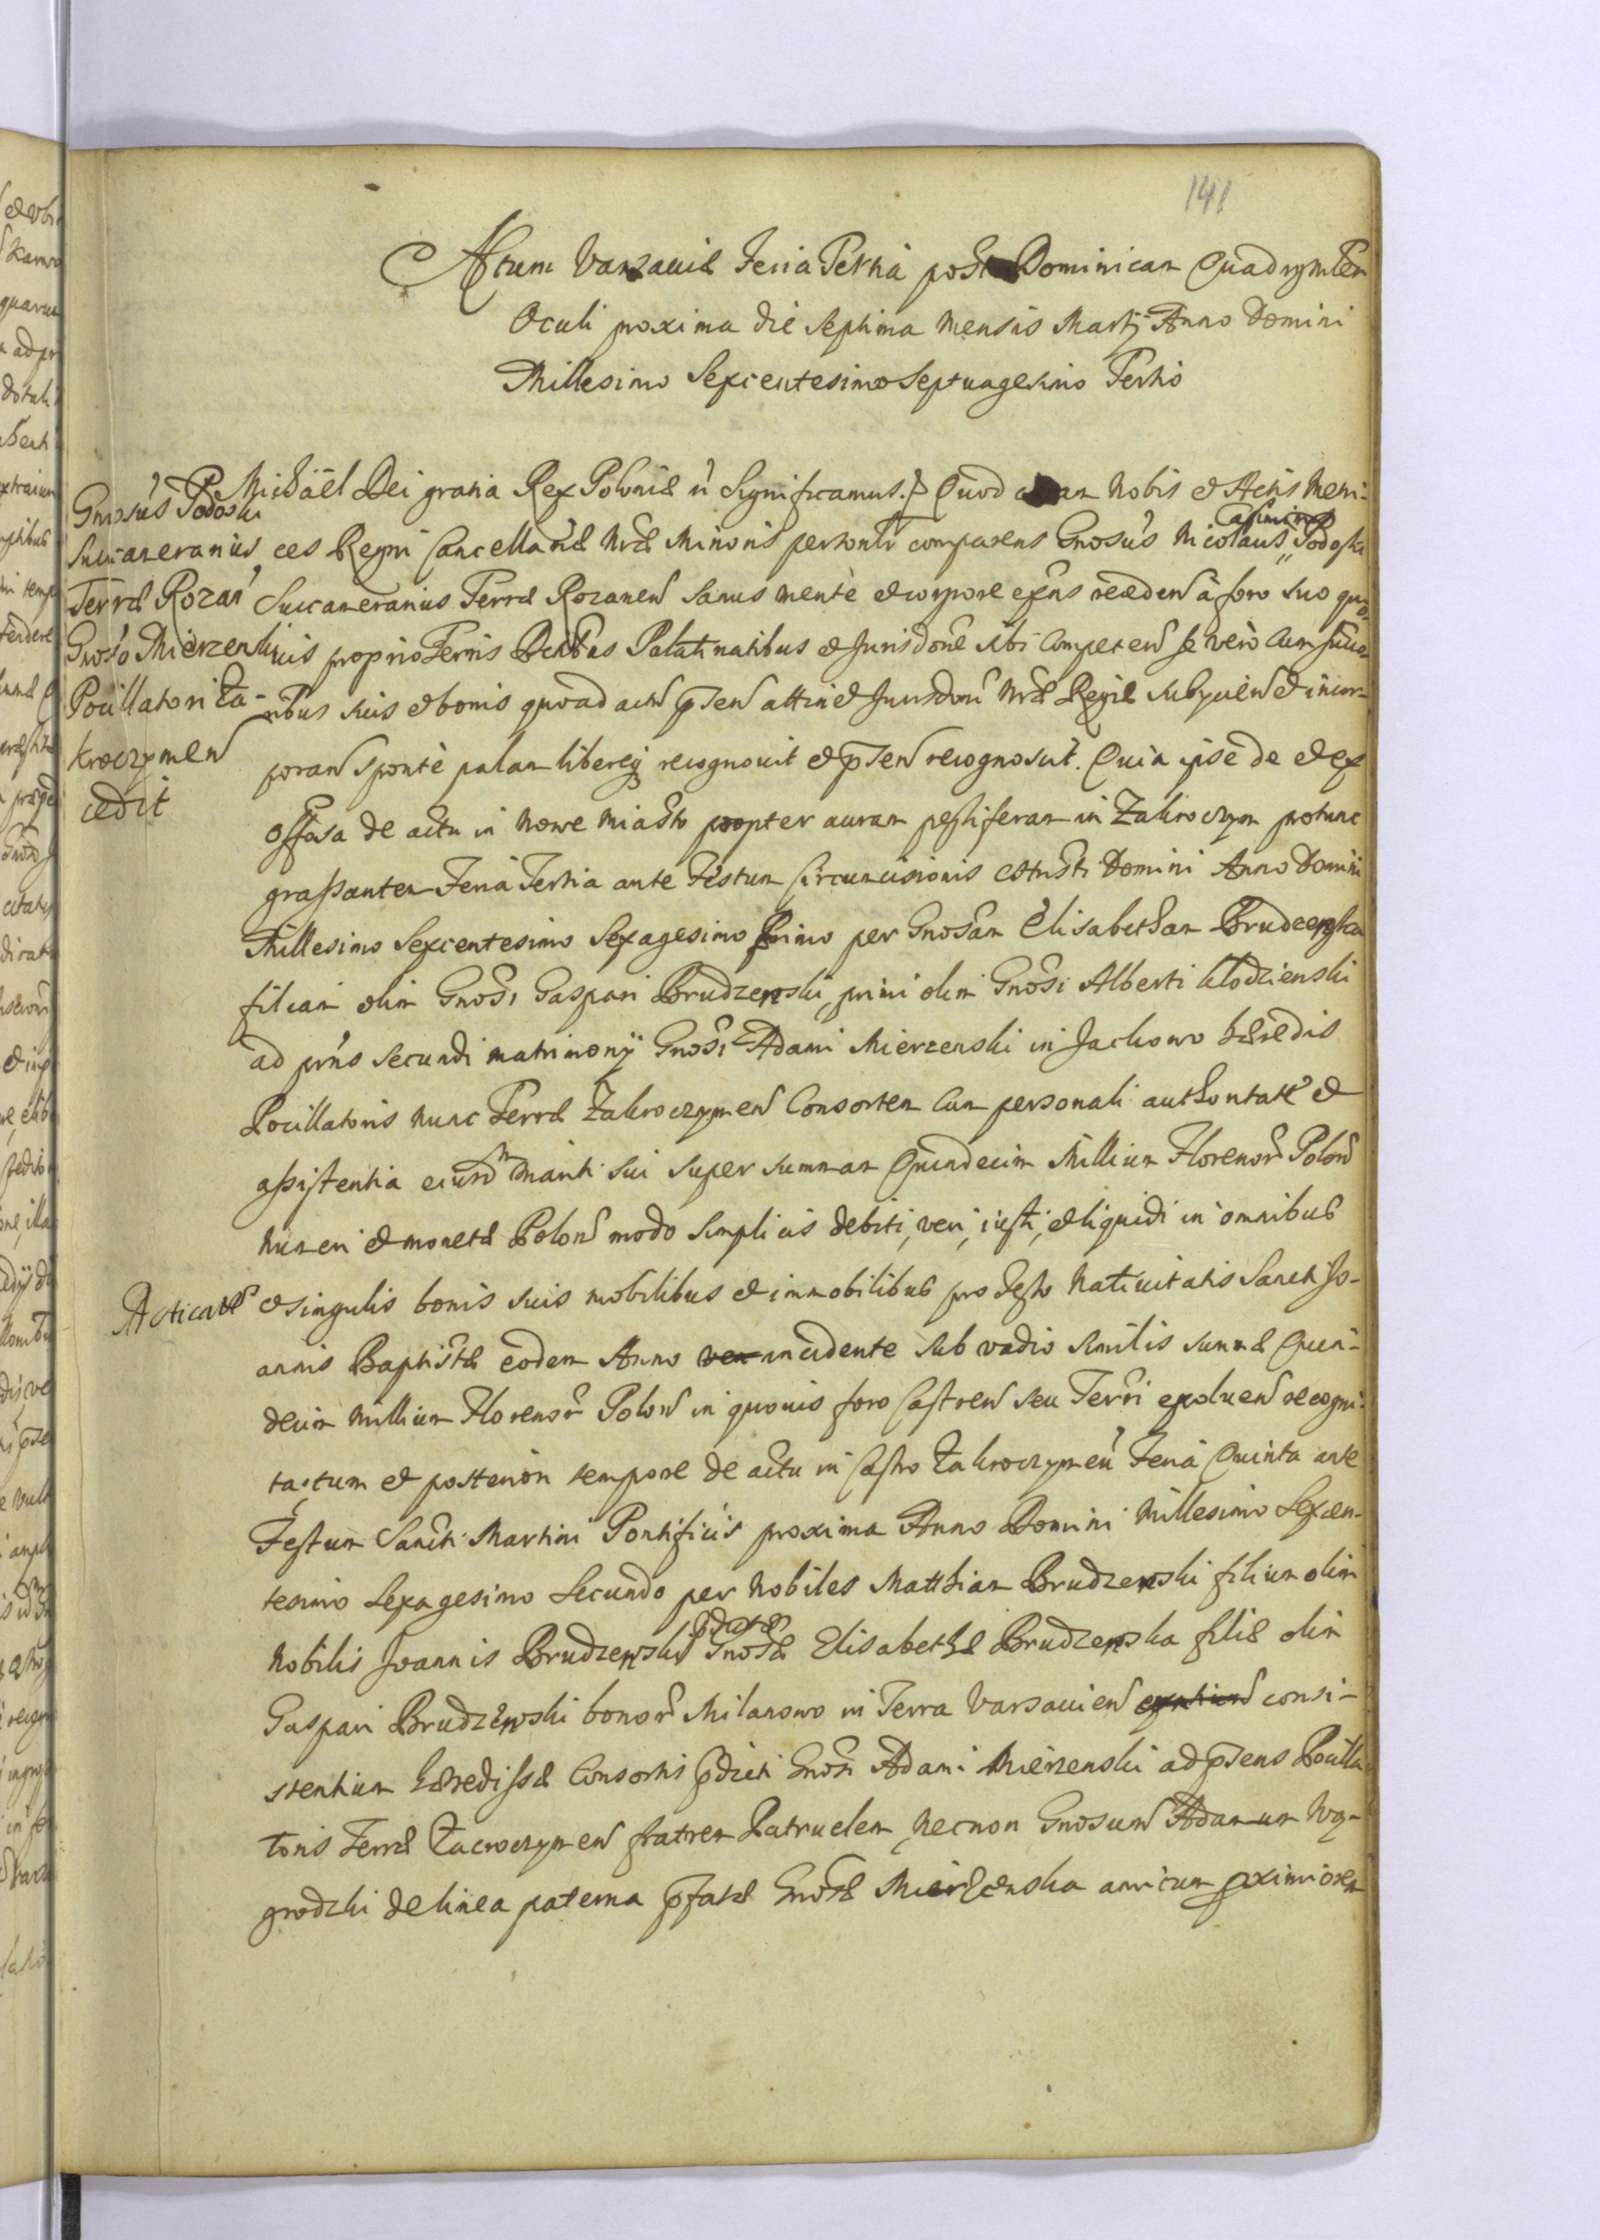 141
Actum Varsaviæ Feria Tertia post Dominicam Quadrgmlem
Oculi proxima die septima Mensis Martij Anno Domini
Millesimo Sexcentesimo Septuagesimo Tertio
Gnosus Podoski
Succameranius
Terræ Rozan
Gnoso Mierzenski
Pocillatori Za-
kroczymen
cedit
Michaël Dei gratia Rex Poloniæ n Significamus. Quod coram Nobis et Actis Metri-
ces Regni Cancellariæ Nræ Minoris personlr comparens Gnosus Nicolaus Casimirus Podoski
Succameranius Terræ Rozanen sanus mente et corpore exns recedens à foro suo quo-
vis proprio Terris Palatinatibus et Jurisdone sibi competen se vero cum succes-
ribus suis et bonis quoad actum psen attinet Jurisdoni Nræ Regiæ subijcien et incor-
poran sponte palam libereq recognovit et psen recognoscit. Quia ipse de et ex
de actu in Nowe Miasto propter auram pestiferam in Zakroczym protunc
grassantem Feria Tertia ante Festum Circumcisionis Christi Domini Anno Domini
Millesimo Sexcentesimo Sexagesimo Primo per Gnosam Elisabetham Brudzenska
filiam olim Gnosi Gaspari Brudzenski, primi olim Gnosi Alberti Klodzienski
ad prns secundi matrimonij Gnosi Adami Mierzenski in Jackowo hæredis
Pocillatoris nunc Terræ Zakroczymen Consortem cum personali authoritate et
assistentia eiusdm mariti sui super summam Quindecim Millium Florenor Polon
numeri et monetæ Polon modo simplicis debiti, veri, iusti, et liquidi in omnibus
Acticatæ
et singulis bonis suis mobilibus et immobilibus pro festo Nativitatis Sancti Jo-
annis Baptistæ eodem Anno incidente sub vadio similis summæ Quin-
decim Millium Florenor Polon in quovis foro Castren seu Terri exolven recogni-
tactum et posteriori tempore de actu in Castro Zakroczymen Feria Quinta ante
Festum Sancti Martini Pontificis proxima Anno Domini Millesimo Sexcen-
tesimo Sexagesimo Secundo per Nobiles Matthiam Brudzenski filium olim
Nobilis Joannis Brudzenski Gnosæ Elisabethæ Brudzenska filiæ olim
Gaspari Brudzenski bonor Milanowo in Terra Varsavien consi-
stentium hæredissæ Consortis pdicti Gnosi Adami Mierzenski ad psens Pocilla-
toris Terræ Zacroczymen fratrem Patruelem, Necnon Gnosum Adamum Wy-
grodzki de linea paterna pfatæ Gnosæ Mierzenska amicum pximiorem